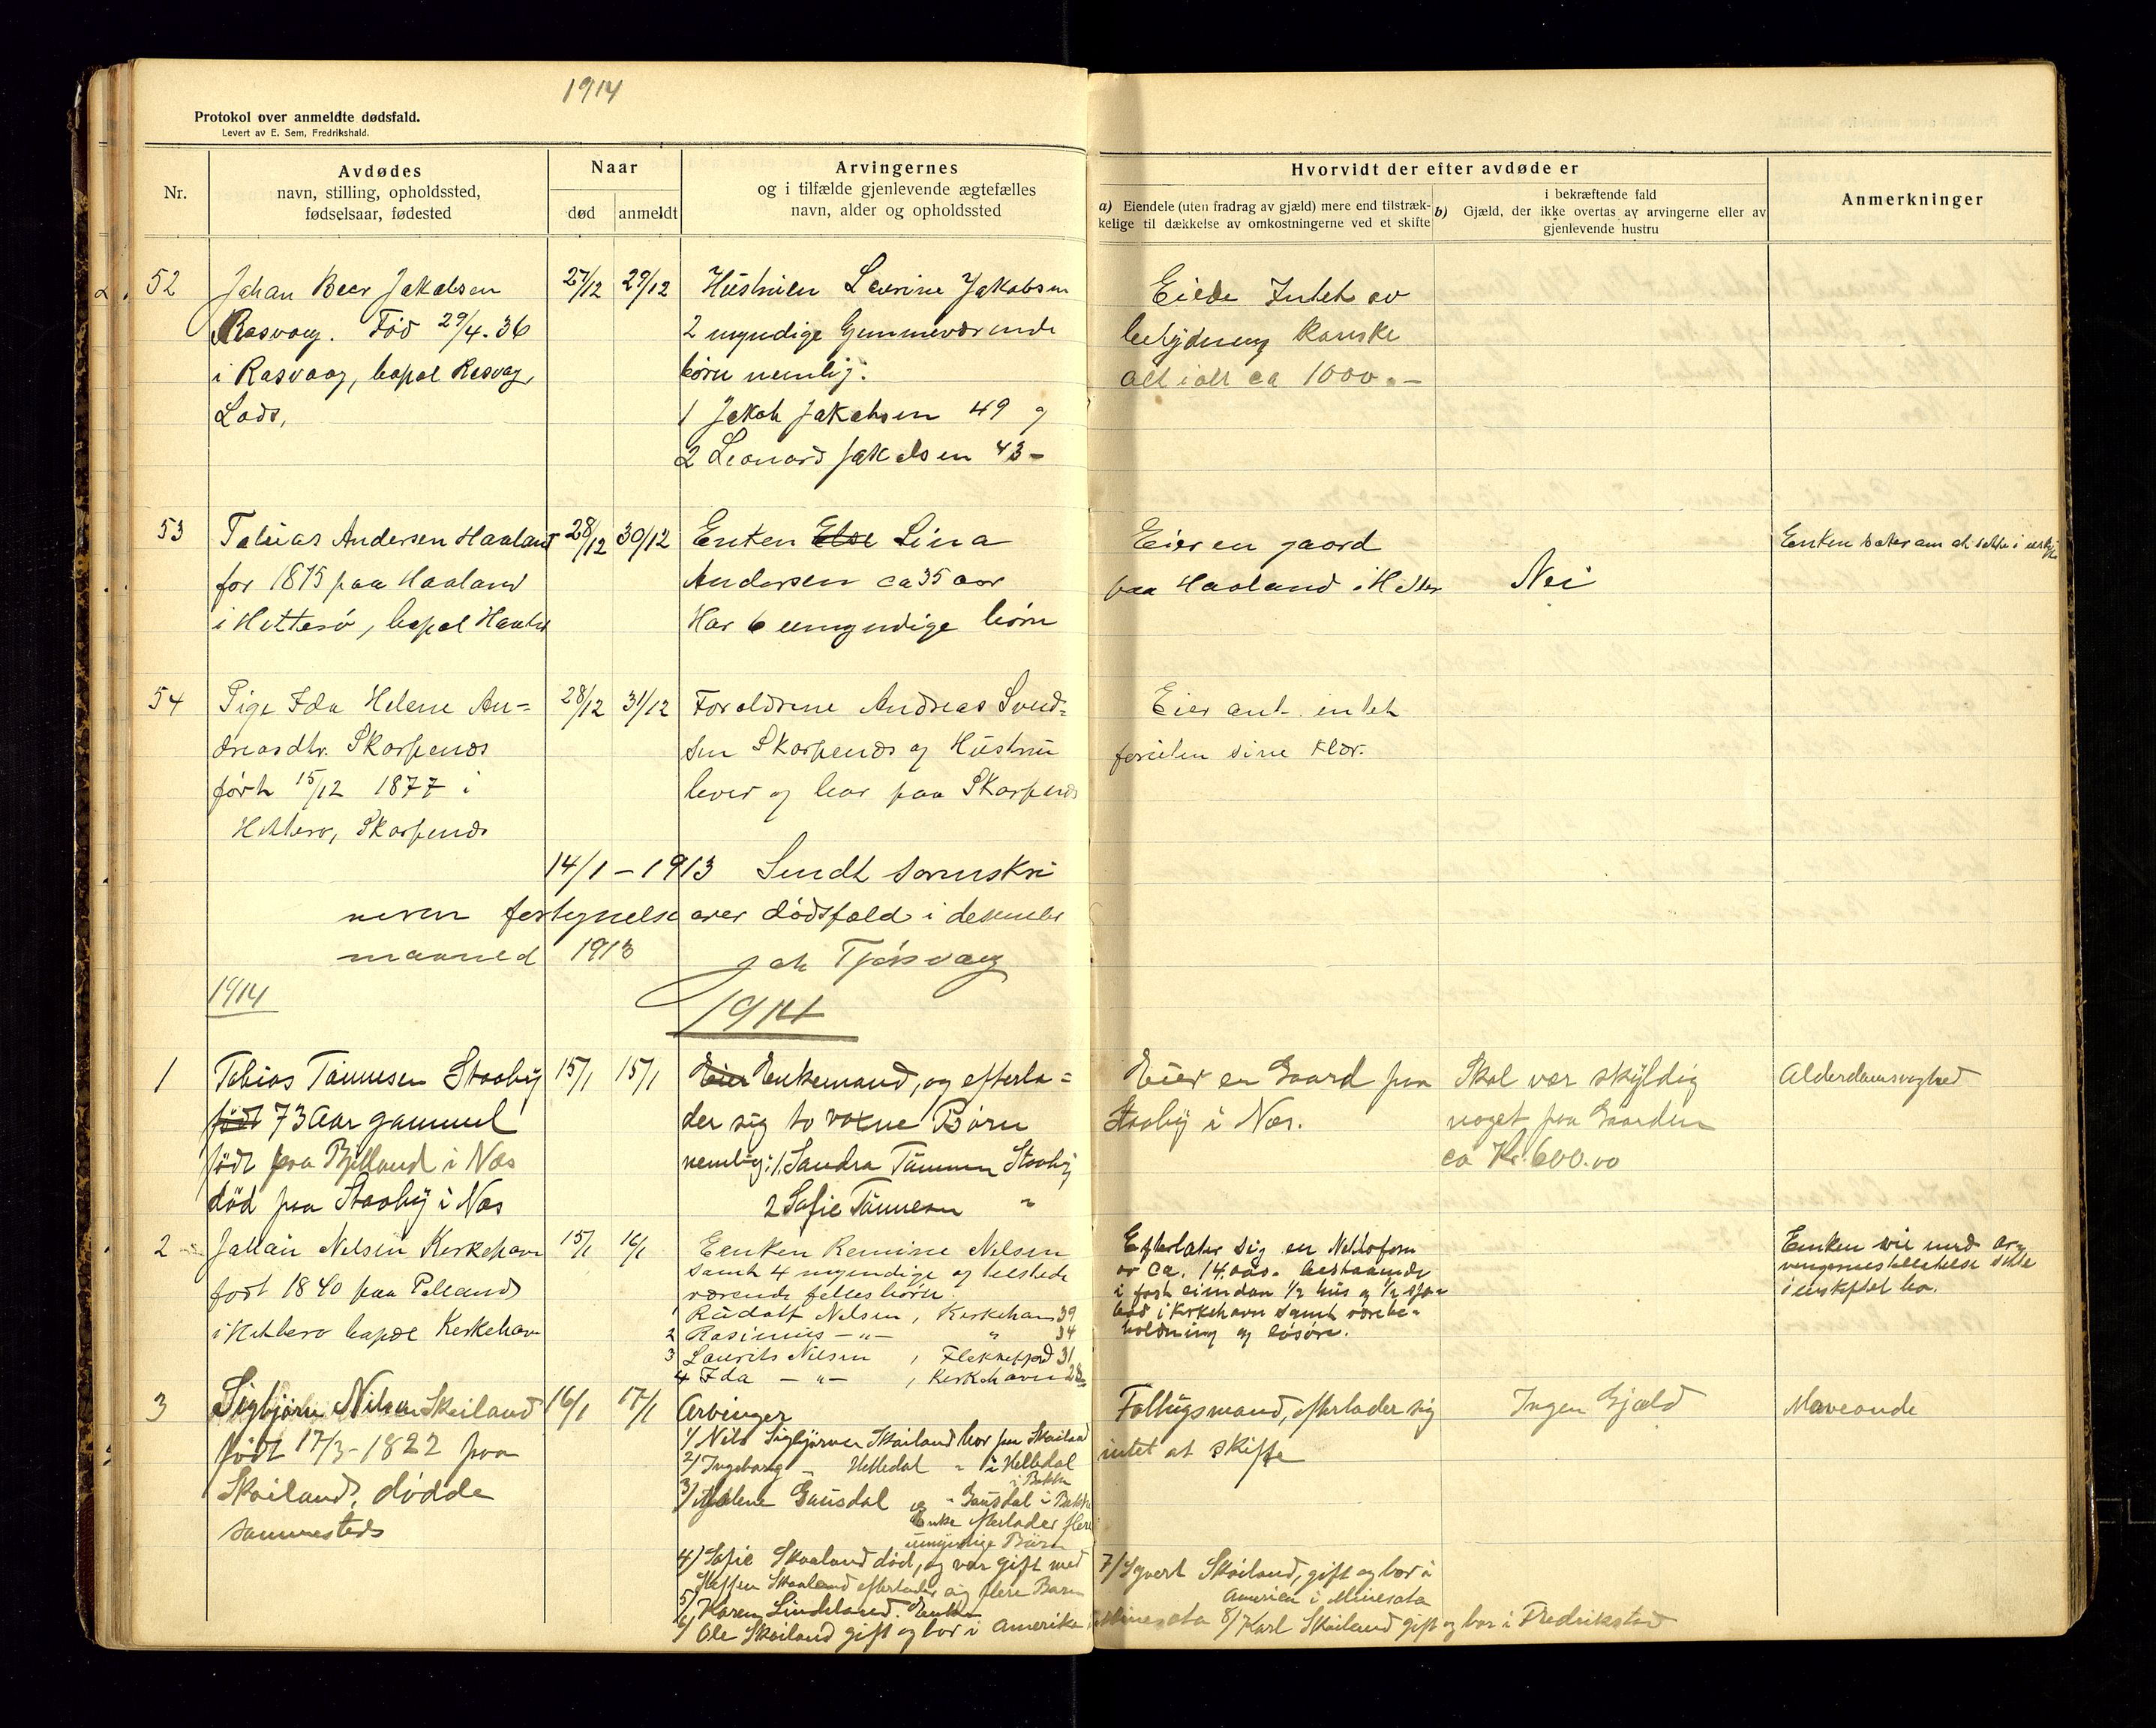 1914
Protokol over anmeldte dødsfald.
Levert av E. Sem, Fredrikshald.
Nr.
Avdødes
navn, stilling, opholdssted,
fødselsaar, fødested
Naar
død
anmeldt
Arvingernes
og i tilfælde gjenlevende ægtefælles
navn, alder og opholdssted
Hvorvidt der efter avdøde er
a) Eiendele (uten fradrag av gjæld) mere end tilstræk-
kelige til dækkelse av omkostningerne ved et skifte
i bekræftende fald
b) Gjæld, der ikke overtas av arvingerne eller av
gjenlevende hustru
Anmerkninger
52
Johan Beer Jakobsen
Rasvaag. Fød 29/4. 36
i Rasvaag, bopæl Rasvag,
Lods,
27/12
29/12
Hustruen Jakobsen
2 myndige
børn nemlig:
1 Jakob Jakobsen 49 og
2 Leonard Jakobsen 43-
Eiede Intet av
betydning kanske
alt i alt ca 1000.-
53
Tobias Andersen Haaland
før 1875 paa Haaland
i Hitterø, bopæl Haaland
28/12
30/12
Enken Else Lina
Andersen ca 35 aar
Har 6 umyndige børn
Eier en gaard
paa Haaland i Hitter
Nei
Enken søker om at sitte i uskifte
54
Pige Ida Helene An=
dreasdtr. Skarpenæs
født 15/12 1877 i
Hitterø, Skarpenæs
28/12
31/12
Foraldrene Andreas Svend=
sen Skarpenæs og Hustru
lever og bor paa Skarpenæs
Eier ant. intet
foruten sine klær.
14/1 - 1913 Sendt sorenskri
veren fortegnelse over dødsfald i desember
maaned 1913
Jak Tjørsvaag
1914
1914
1
Tobias Tønnesen Staaby
født 73 Aar gammel
født paa Bjelland i Næs
død paa Staaby i Næs
15/1
15/1
Eier Enkemand, og efterla=
der sig to voxne Børn
nemlig: 1. Sandra Tønnesen Staaby
2 Sofie Tønnesen "
Eier en Gaard paa
Staaby i Næs.
Skal vær skyldig
noget paa Gaarden
ca Kr. 600.00
Alderdomsvaghed
2
Johan Nelsen Kirkehavn
født 1840 paa
i Hitterø bopæl Kirkehavn
15/1
16/1
Enken Nelsen
samt 4 myndige og tilstede
værende felles børn.
1 Rudolf Nelsen, Kirkehavn 39
2 Rasmus - " - " 34
3 Laurits Nilsen, Flekkefjord 31
4 Ida - " - , Kirkehavn 28
Efterlater sig en Nettoform
av ca. 14.000. bestaaende
i fast eiendom 1/2 hus og 1/2 sjø=
bod i Kirkehavn samt varebe=
holdning og løsøre.
Enken vil med ar
vingernes tilladelse sitte
i uskiftet bo.
3
Sigbjørn Nilsen Skailand
født 17/3-1822 paa
Skailand, dødde
sammesteds
16/1
17/1
Arvinger
1/ Nils Sigbjørnsen Skailand bor paa Skailand
2/ Ingeborg " Helledal " i Helledal
i Bakke
3/ Malene Gausdal og " Gausdal i Bakke
Enke efterlader flere
umyndige Børn
4/ Sofie Skaaland død, og var gift med
Steffen Skaaland efterlader sig flere Barn
5/ Karen Lindeland. Enke
6/ Ole Skailand gift og bor i Amerika i Minesota
Faltigsmand, efterlader sig
intet at skifte
Ingen Gjæld
Maveonde
7/ Syvert Skailand, gift og bor i
Amerika i Minesota
8/ Karl Skailand gift og bor i Fredrikstad